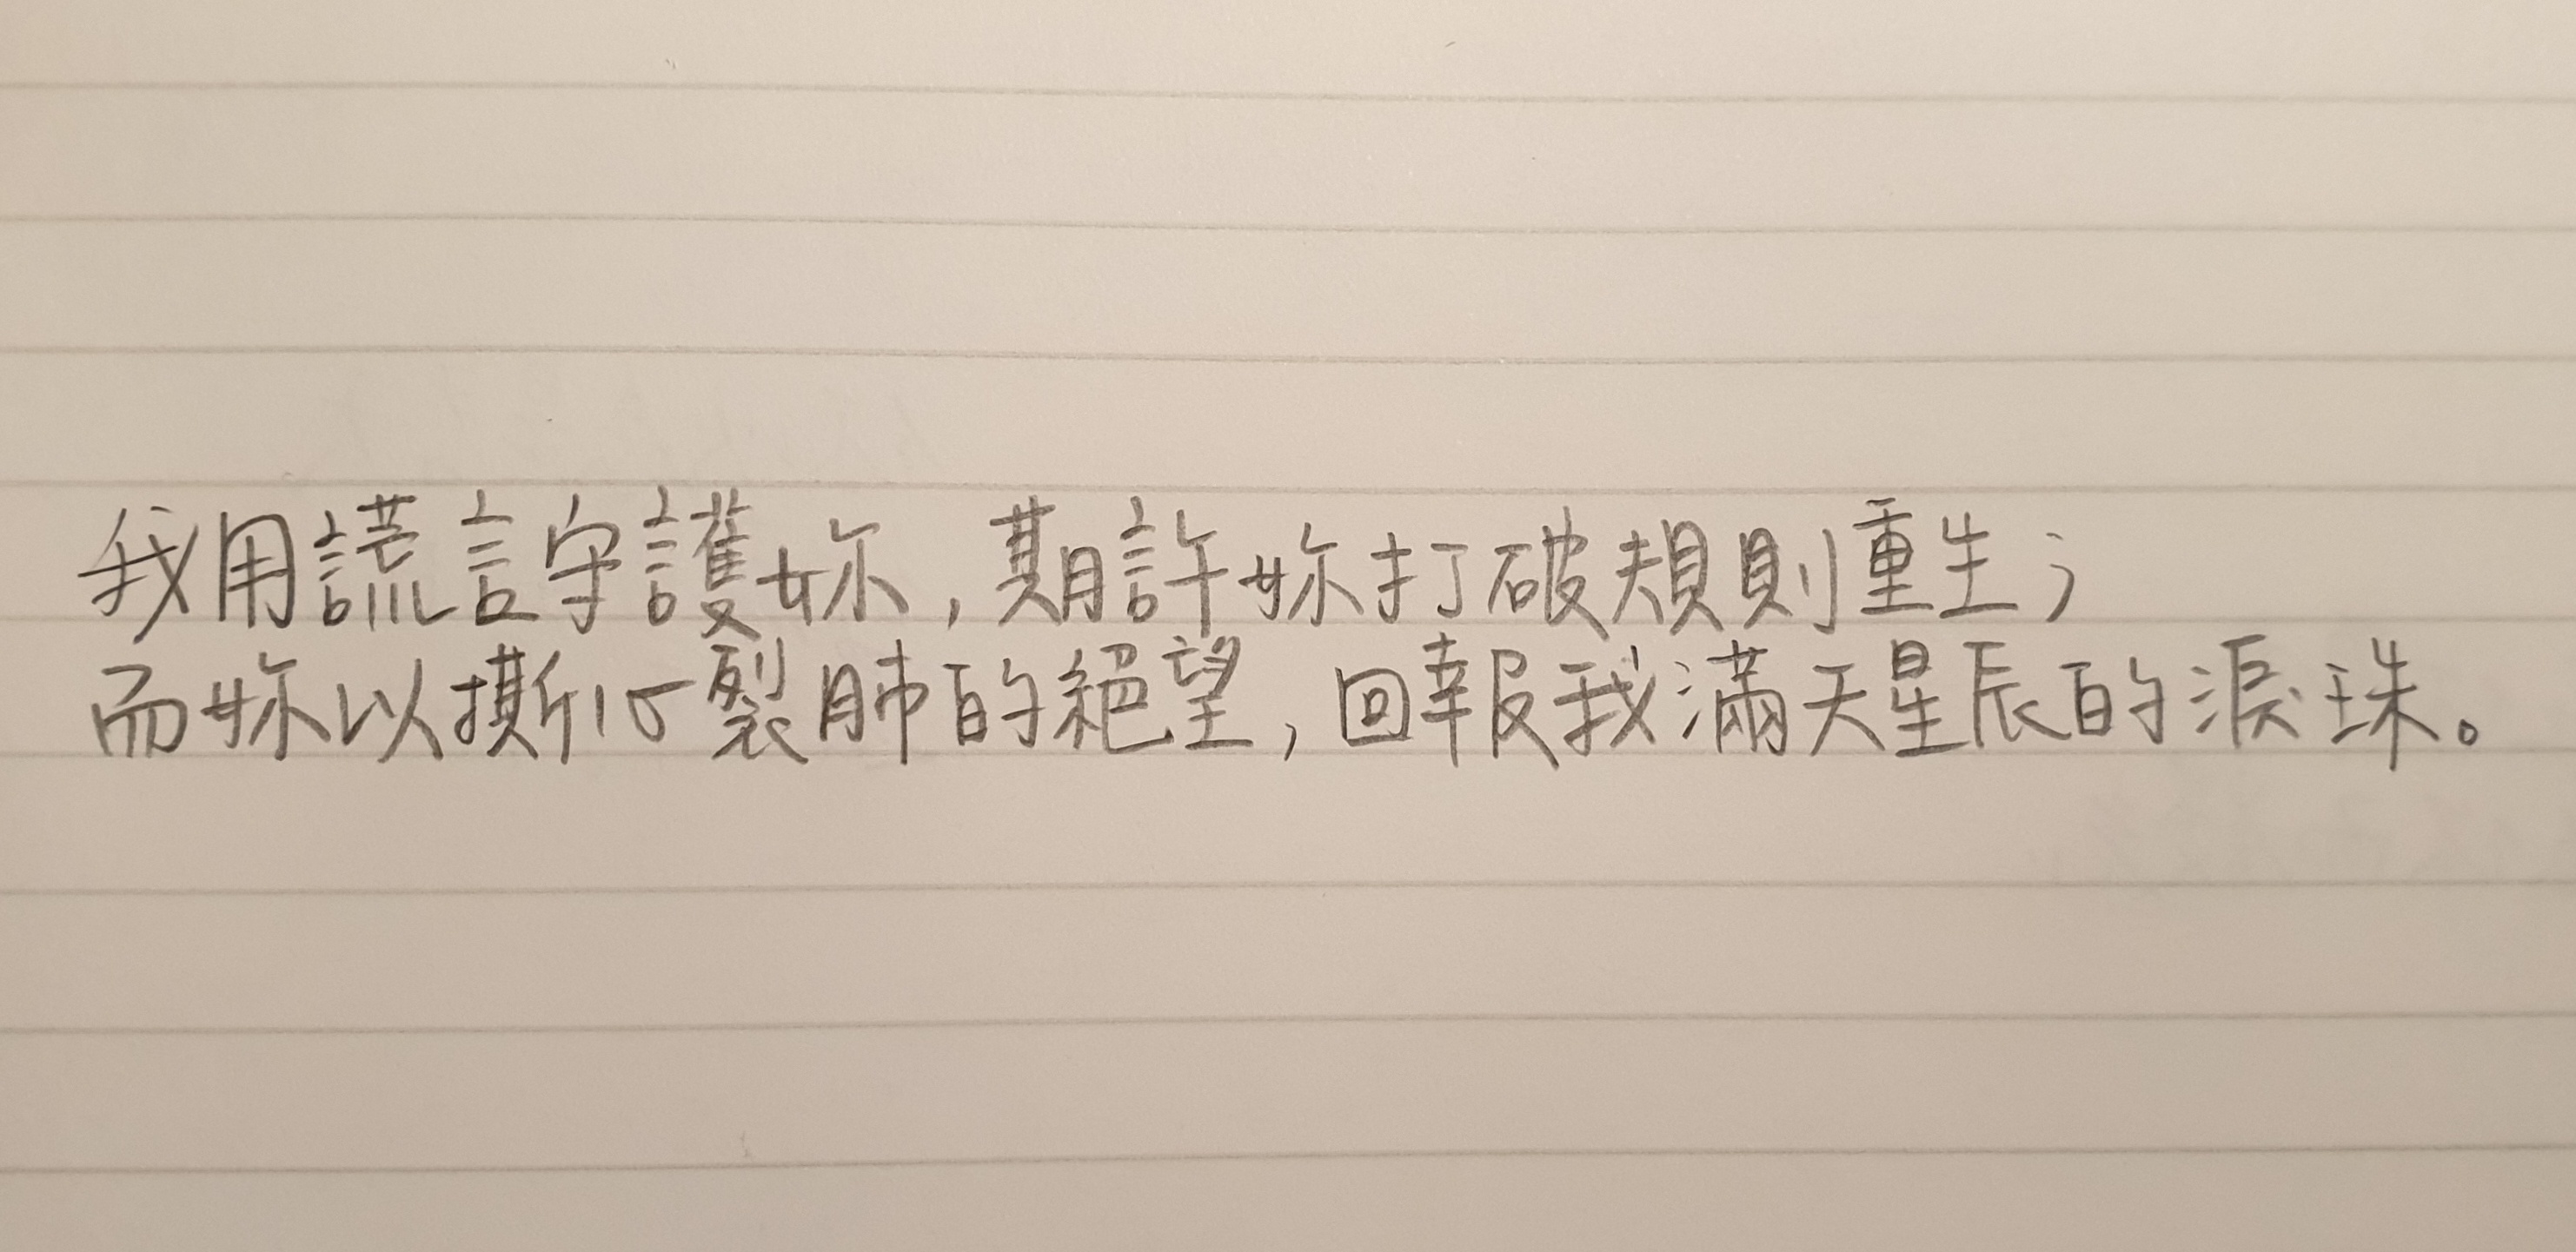 我用謊言守護妳，期許妳打破規則重生；
而妳以撕心裂肺的絕望，回報我滿天星辰的淚珠。